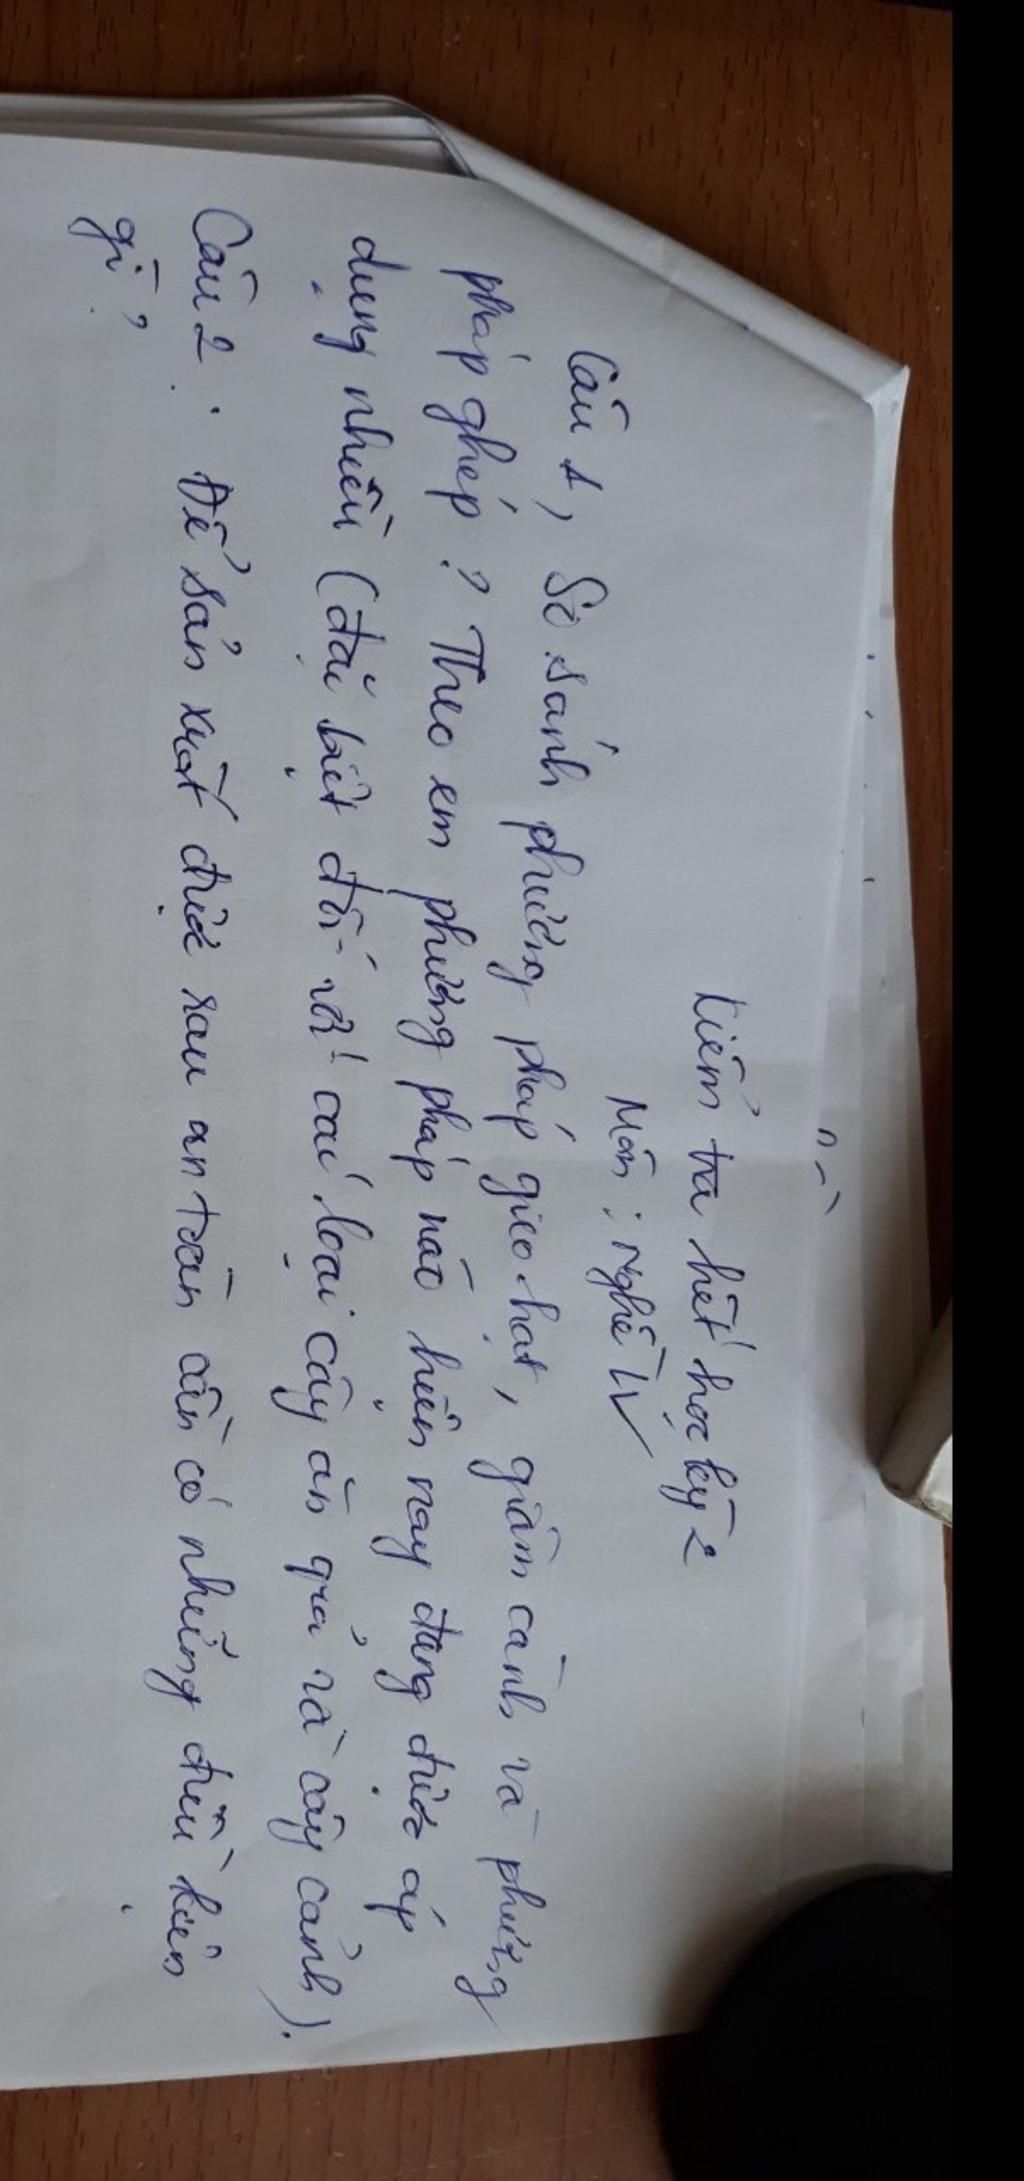 Kiểm tra hết học kỳ 2
Môn: Nghề LV
Câu 1, So sánh phương pháp gieo hạt, giâm cành và phương
pháp ghép? Theo em phương pháp nào hiện nay đang được áp
dụng nhiều (đặc biệt đối với các loại cây ăn quả và cây cảnh).
Câu 2. Để sản xuất được rau an toàn cần có những điều kiện
gì?